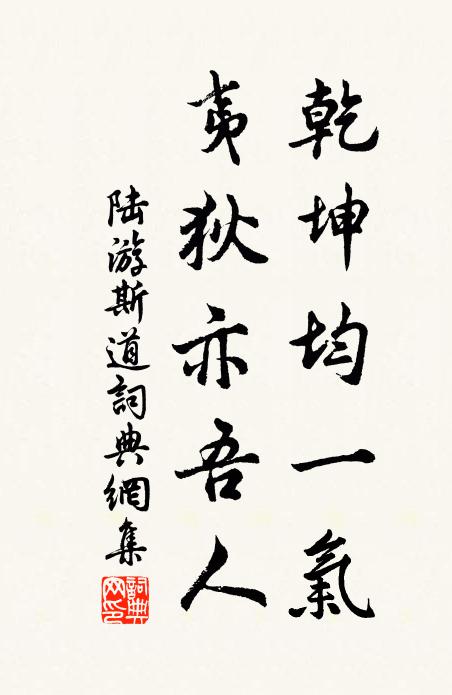 乾坤均一氣
夷狄亦吾人
陆游斯道詞典網集
詞典网印